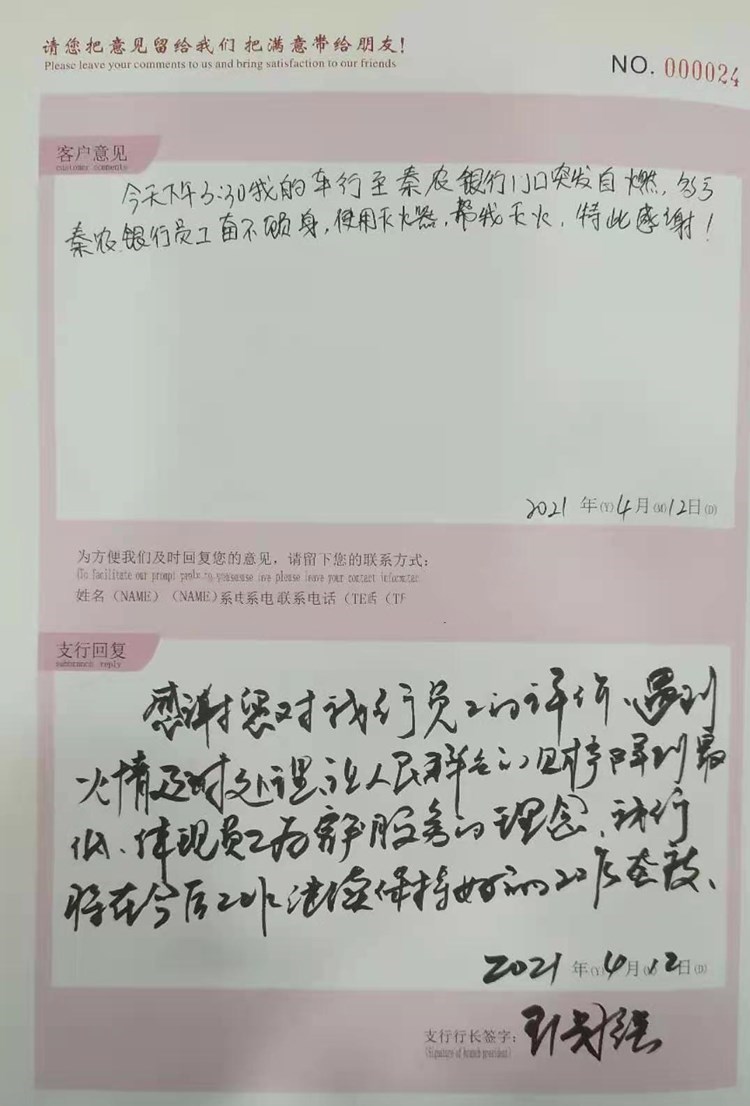 请您把意见留给我们 把满意带给朋友!
Please leave your comments to us and bring satisfaction to our friends
NO. 000024
客户意见
customer comments
今天下午3:30我的车行至秦农银行门口突发自燃,
秦农银行员工奋不顾身,使用灭火器,帮我灭火,特此感谢!
2021 年(Y) 4 月(M) 12 日(D)
为方便我们及时回复您的意见,请留下您的联系方式:
姓名(NAME)(NAME)系电系电联系电话(TE话(TF
支行回复
subbranch reply
感谢您对我行员工的评价、遇到
火情及时处理,让人民群众的财产降到最
低、体现员工为客户服务的理念、我行
将在今后工作继续保持好的工作态度、
2021 年(Y) 4 月(M) 12 日(D)
支行行长签字:
(Signature of branch president)